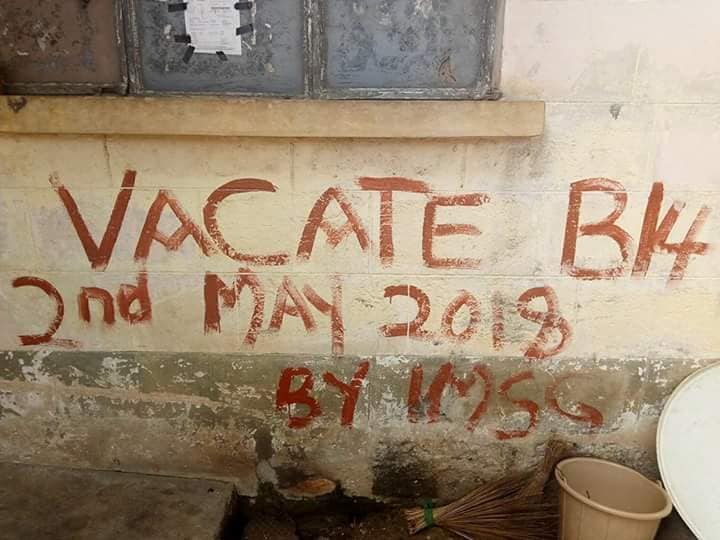 VACATE B14
2nd MAY 2018
BY IMSG